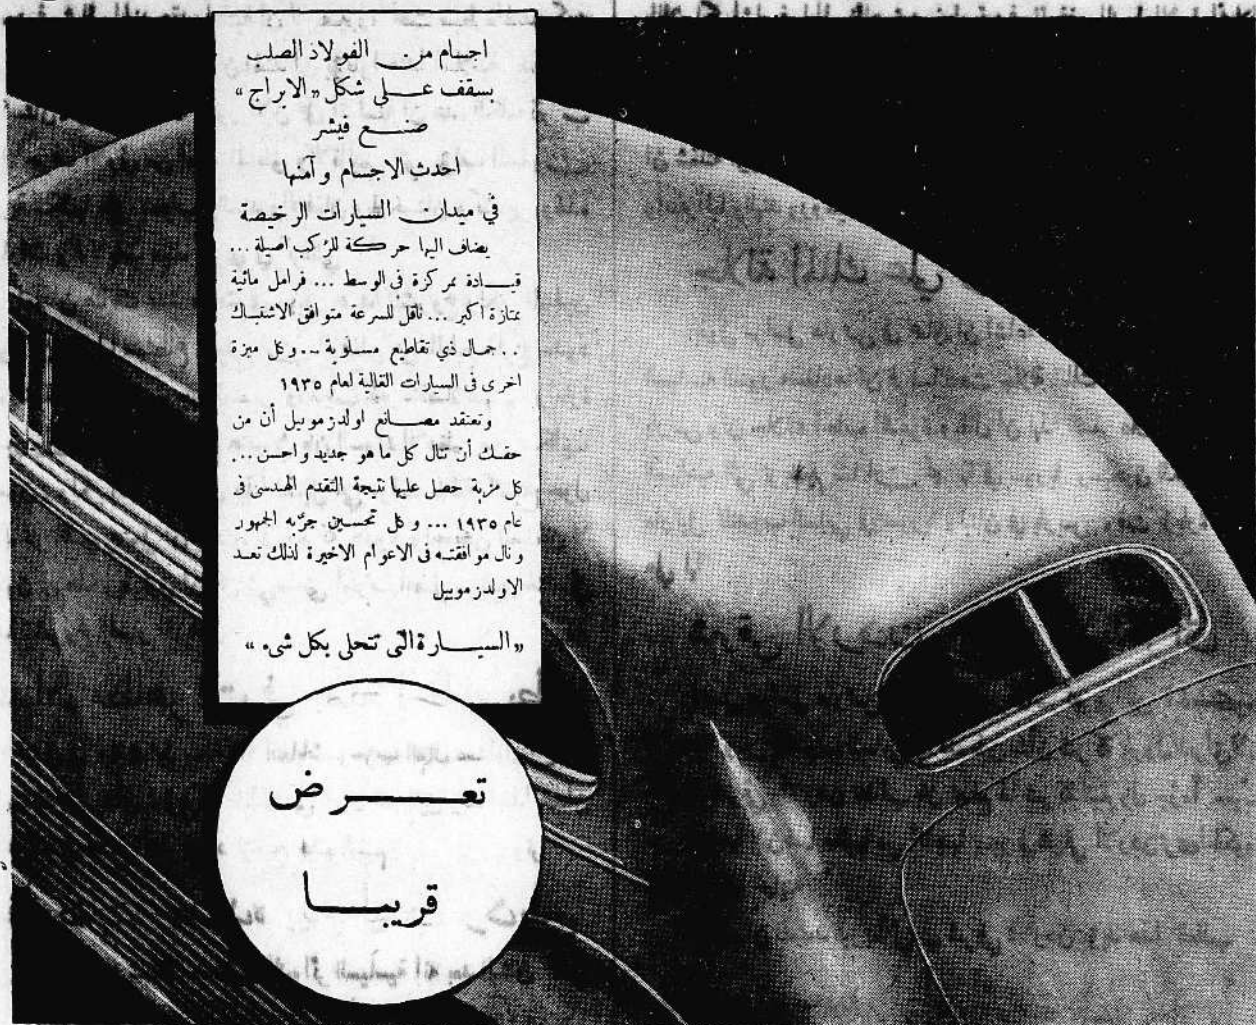 اجسام من الفولاذ الصلب
بسقف على شكل «الابراج»
صنع فيشر
احدث الاجسام وآمنها
في ميدان السيارات الرخيصة
يضاف اليها حركة للركب اصيلة ...
قيادة ممركزة في الوسط ... فرامل مائية
ممتازة اكبر ... ناقل للسرعة متوافق الاشتباك
.. جمال ذي تقاطيع مسلوبة ... وكل ميزة
اخرى في السيارات الغالية لعام ١٩٣٥
وتعتقد مصانع اولدزموبيل أن من
حقك أن تنال كل ما هو جديد واحسن ...
كل مزية حصل عليها نتيجة التقدم الهندسي في
عام ١٩٣٥ ... وكل تحسين جرّبه الجمهور
ونال موافقته في الاعوام الاخيرة لذلك تعد
الاولدزموبيل
«السيارة التي تتحلى بكل شيء»
تعرض
قريبا